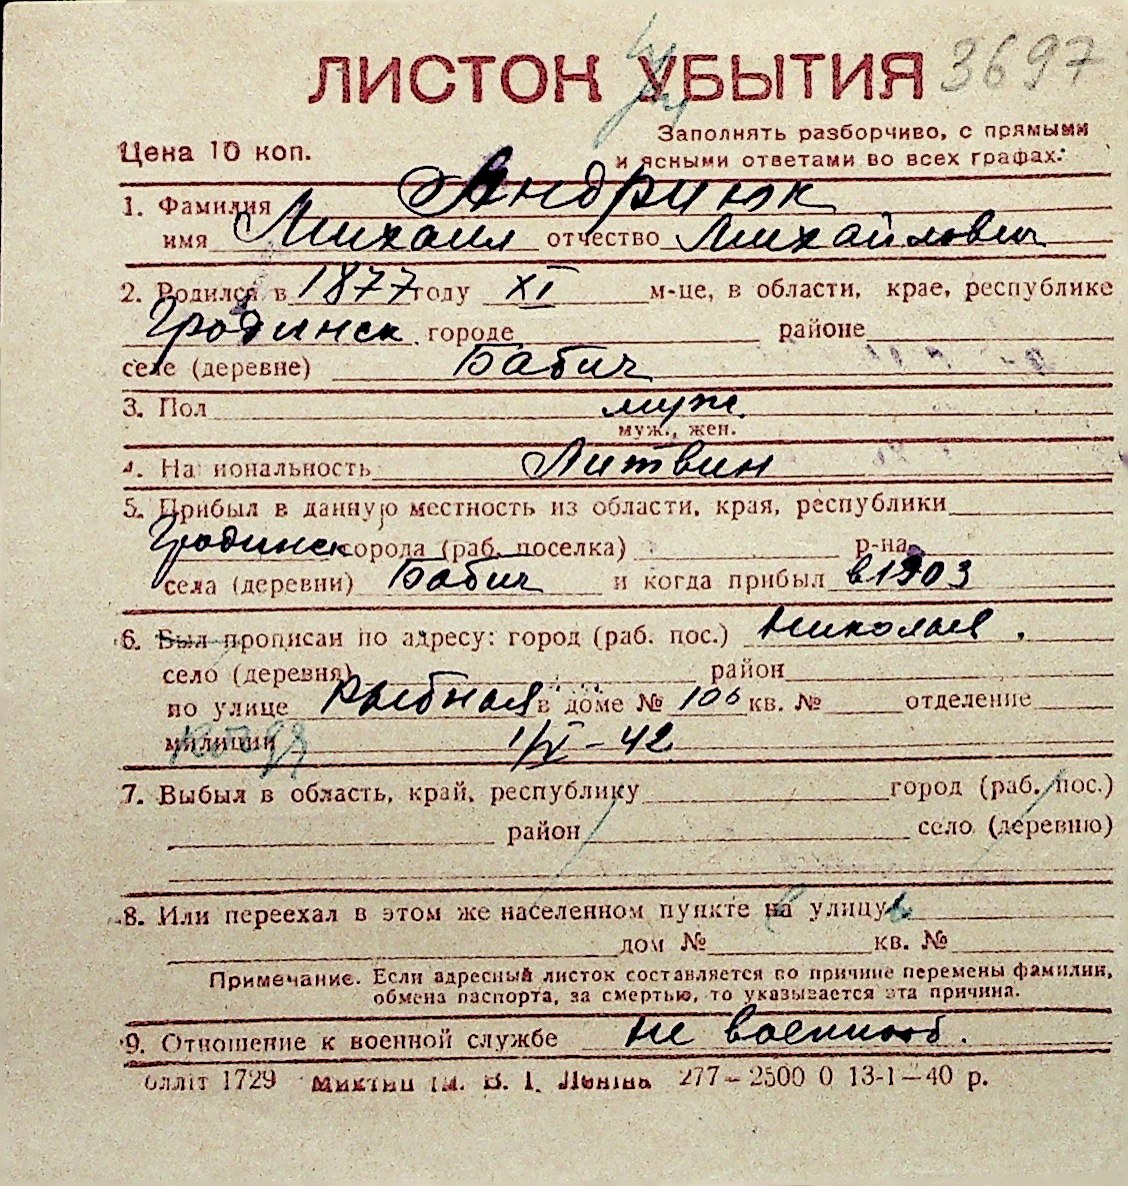 ЛИСТОК УБЫТИЯ 3697
Цена 10 коп.
Заполнять разборчиво, с прямыми
и ясными ответами во всех графах.
1. Фамилия Андриюк
имя Михаил отчество Михайлович
2. Родился в 1877 году XI м-це, в области, крае, республике
Гродинск. городе районе
селе (деревне) Бабич
3. Пол муж.
муж., жен.
4. Национальность Литвин
5. Прибыл в данную местность из области, края, республики
Гродинск города (раб. поселка) р-на
села (деревни) Бабич и когда прибыл в 1903
6. Был прописан по адресу: город (раб. пос.) Николаев.
село (деревня) район
по улице Рыбная в доме № 106 кв. № отделение
милиции 1/VI-42
7. Выбыл в область, край, республику город (раб. пос.)
район село (деревню)
8. Или переехал в этом же населенном пункте на улицу
дом № кв. №
Примечание. Если адресный листок составляется по причине перемены фамилии,
обмена паспорта, за смертью, то указывается эта причина.
9. Отношение к военной службе не военнооб.
1729 ім. В. І. Леніна 277–2500 0 13-1–40 р.